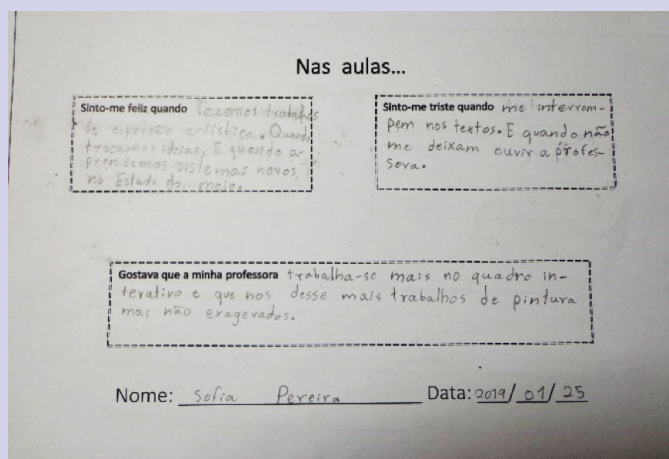 Nas aulas...
Sinto-me feliz quando fazemos trabalhos
de expressão artística. Quando
trocamos ideias. E quando a-
prendemos sistemas novos
no Estado do meio.
Sinto-me triste quando me interrom-
pem nos textos. E quando não
me deixam ouvir a profes-
sora.
Gostava que a minha professora trabalha-se mais no quadro in-
terativo e que nos desse mais trabalhos de pintura
mas não exagerados.
Nome: Sofia Pereira Data: 2019/01/25